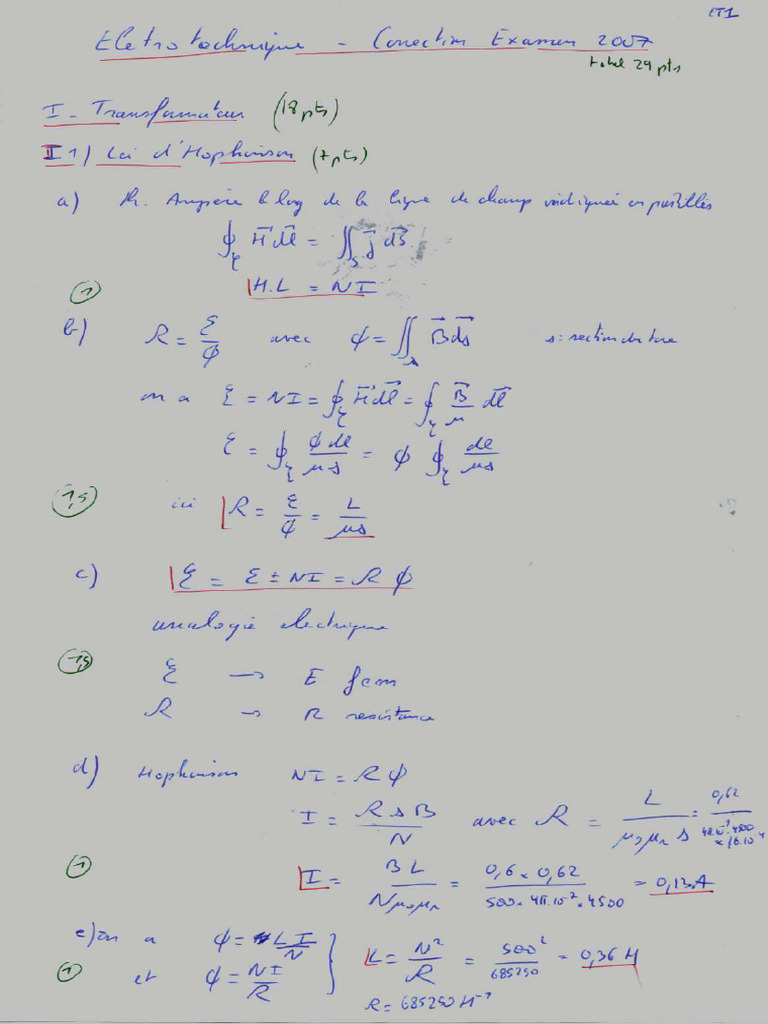 ET1
Eletrotechnique - Correction Examen 2007
total 24 pts
I - Transformateur (18 pts)
II 1) Loi d'Hophinson (7 pts)
a) th. Ampère le long de la ligne de champ indiquée en pointillés
∮_C H⃗ dl⃗ = ∬_S j⃗ dS⃗
① H.L = NI
b) R = ℰ/ϕ avec ϕ = ∬_s B⃗ ds⃗ s: section du tore
on a ℰ = NI = ∮_C H⃗ dl⃗ = ∮_C B⃗/μ dl⃗
ℰ = ∮_C ϕ dl/μs = ϕ ∮_C dl/μs
1,5 ici R = ℰ/ϕ = L/μs
c) ℰ = Σ ± NI = R ϕ
analogie electrique
1,5 ℰ → E fem
R → R resistance
d) Hophinson NI = R ϕ
I = R s B/N avec R = L/μ₀μᵣ s = 0,62/
① I = B L/Nμ₀μᵣ = 0,6 × 0,62/500 × 4π.10⁻⁷ × 4500 = 0,13 A
e) on a ϕ = L I/N
① et ϕ = NI/R } L = N²/R = 500²/685250 = 0,36 H
R = 685250 H⁻¹